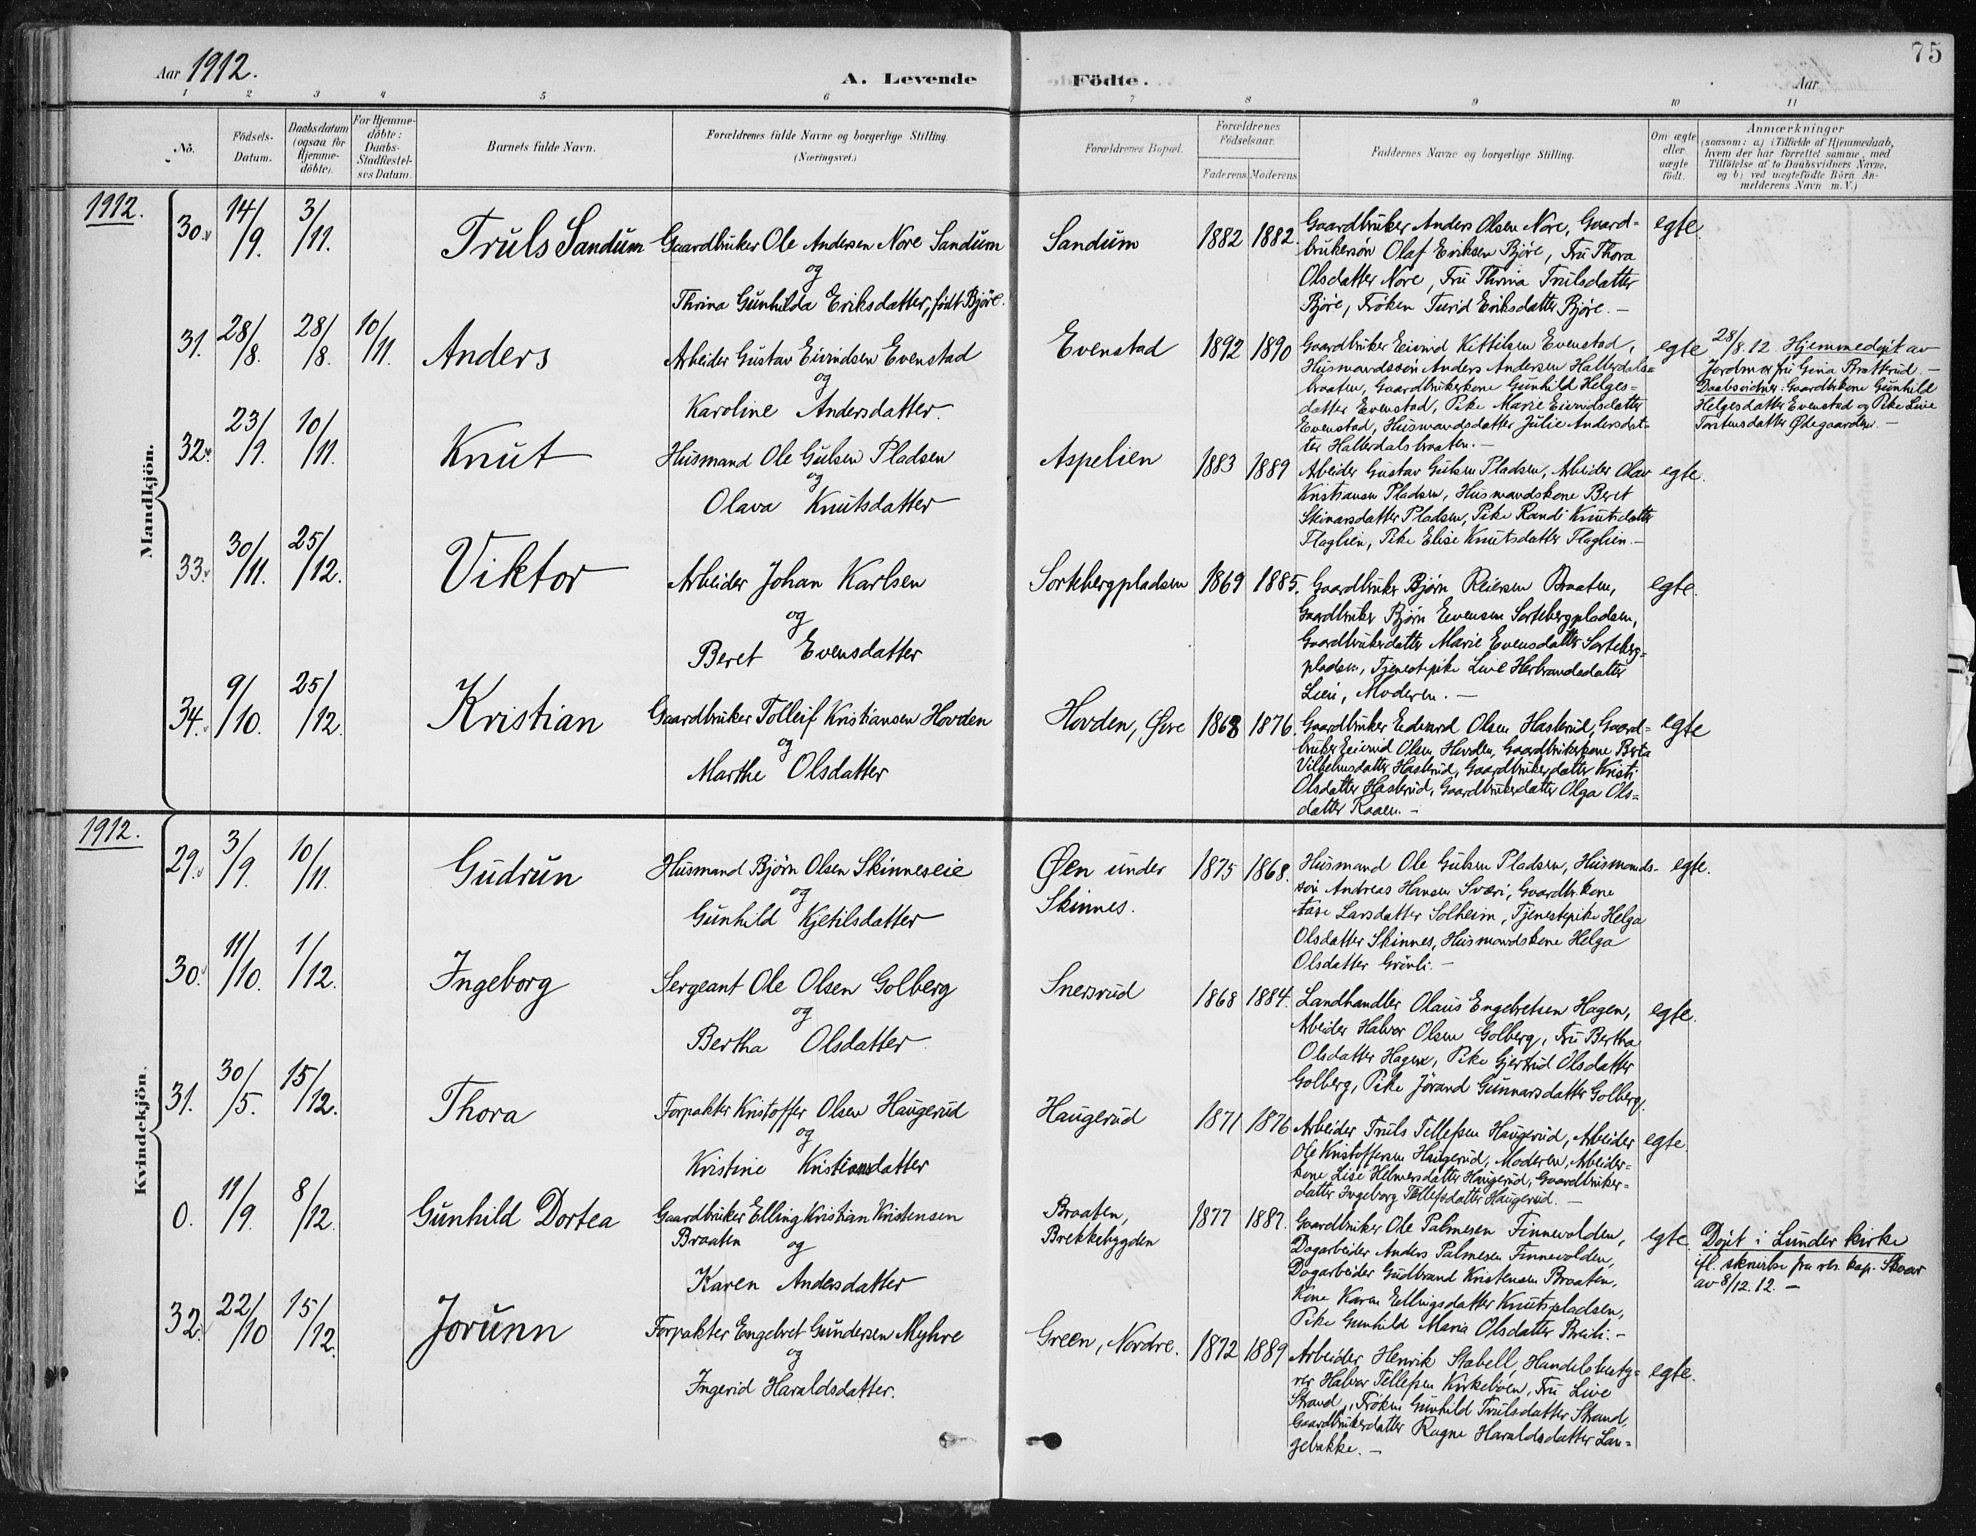 75
Aar 1912. A. Levende Födte. Aar
1 2 3 4 5 6 7 8 9 10 11
No. Födsels-Datum. Daabsdatum (ogsaa for Hjemme-döbte). For Hjemme-döbte: Daabs-Stadfæstel-ses Datum. Barnets fulde Navn. Forældrenes fulde Navne og borgerlige Stilling. (Næringsvei.) Forældrenes Bopæl. Forældrenes Födselsaar. Faderens Moderens Faddernes Navne og borgerlige Stilling. Om ægte eller uægte födt. Anmærkninger
(saasom: a) i Tilfælde af Hjemmedaab,
hvem der har forrettet samme, med
Tilföielse af to Daabsvidners Navne,
og b) ved uægtefödte Börn An-
melderens Navn m. V.)
1912.
Mandkjön.
30. 14/9. 3/11. Truls Sandum Gaardbruker Ole Andersen Nore Sandum Sandum 1882 1882. Gaardbruker Anders Olsen Nore, Gaard- egte.
og brukersøn Olaf Eriksen Bjøre, Fru Thora
Thrina Gunhilda Eriksdatter, født Bjøre. Olsdatter Nore, Fru Thrina Trulsdatter
Bjøre, Frøken Turid Eriksdatter Bjøre. —
31. 28/8. 28/8. 10/11. Anders Arbeider Gustav Eivindsen Evenstad Evenstad 1892 1890 Gaardbruker Eivind Kittelsen Evenstad, egte 28/8.12. Hjemmedøpt av
og Husmandssøn Anders Andersen Hallerdals- Jordmor fru Gina Bratterud. —
Karoline Andersdatter. braaten, Gaardbrukerkone Gunhild Helges- Daabsvidner: Gaardbrkone Gunhild
datter Evenstad, Pike Marie Eivindsdatter Helgesdatter Evenstad og Pike Live
Evenstad, Husmandsdatter Julie Andersdat- Torstensdatter Ødegaarden. —
ter Hallerdalsbraaten. —
32. 23/9. 10/11. Knut Husmand Ole Gulsen Pladsen Aspelien 1883 1889 Arbeider Gustav Gulsen Pladsen, Arbeider Olav egte.
og Kristiansen Pladsen, Husmandskone Beret
Olava Knutsdatter Steinarsdatter Pladsen, Pike Randi Knutsdatter
Flaglien, Pike Elise Knutsdatter Flaglien. —
33. 30/11. 25/12. Viktor Arbeider Johan Karlsen Sortebergpladsen 1869 1885. Gaardbruker Bjørn Reiersen Braaten, egte.
og Gaardbruker Bjørn Evensen Sortebergpladsen,
Beret Evensdatter Gaardbrukerdatter Marie Evensdatter Sorteberg-
pladsen, Tjenestepike Live Herbrandsdatter
Lien, Moderen. —
34. 9/10. 25/12. Kristian Gaardbruker Tolleif Kristiansen Hovden Hovden, Øvre 1868 1876. Gaardbruker Edvard Olsen Hasterud, Gaard- egte
og bruker Eivind Olsen Hovden, Gaardbrukerkone Berta
Marthe Olsdatter Vilhelmsdatter Hasterud, Gaardbrukerdatter Kristi
Olsdatter Hasterud, Gaardbrukerdatter Olga Ols-
datter Raaen. —
1912.
Kvindekjön.
29. 3/9. 10/11. Gudrun Husmand Bjørn Olsen Skinneseie Øen under 1875 1868. Husmand Ole Gulsen Pladsen, Husmands- egte.
og Skinnes. søn Andreas Hansen Sværi, Gaardbrkone
Gunhild Kjetilsdatter Aase Larsdatter Solheim, Tjenestepike Helga
Olsdatter Skinnes, Husmandskone Helga
Olsdatter Grønli. —
30. 11/10. 1/12. Ingeborg Sergeant Ole Olsen Golberg Snersrud 1868 1884. Landhandler Olaus Engebretsen Hagen, egte.
og Arbeider Halvor Olsen Golberg, Fru Bertha
Bertha Olsdatter Olsdatter Hagen, Pike Gjertrud Olsdatter
Golberg, Pike Jørand Gunnarsdatter Golberg.
31. 30/5. 15/12. Thora Forpakter Kristoffer Olsen Haugerud Haugerud 1871 1876 Arbeider Truls Tellefsen Haugerud, Arbeider egte.
og Ole Kristoffersen Haugerud, Moderen, Arbeider-
Kristine Kristiansdatter kone Lise Helmersdatter Haugerud, Gaardbruker-
datter Ingeborg Tellefsdatter Haugerud. —
0. 11/9. 8/12. Gunhild Dortea Gaardbruker Elling Kristian Kristensen Braaten, 1877 1887. Gaardbruker Ole Palmesen Finnevolden, egte. Døpt i Lunder kirke
Braaten og Brekkebygden Dagarbeider Anders Palmesen Finnevolden, ifl. skrivelse fra res. kap. Skaar
Karen Andersdatter Dagarbeider Gudbrand Kristensen Braaten, av 8/12.12. —
Kone Karen Ellingsdatter Knutspladsen,
Pike Gunhild Maria Olsdatter Breili. —
32. 22/10 15/12. Jorunn Forpakter Engebret Gundersen Myhre Green, Nordre. 1872 1889 Arbeider Henrik Stabell, Handelsbesty- egte.
og rer Halvor Tellefsen Kirkebøen, Fru Live
Ingerid Haraldsdatter. Strand, Frøken Gunhild Trulsdatter Strand,
Gaardbrukerdatter Ragne Haraldsdatter Lan-
gebakke. —